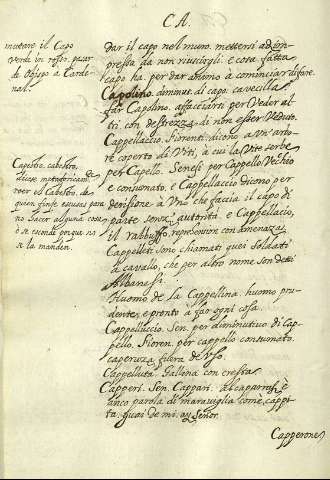 CA.
mutare il Capo
Verde in rosso. pasar
de Obispo a Carde-
nal.
Capestro, cabestro,
dicese metaforicamte
roer el Cabestro, de
quien finge escusas para
no hacer alguna cosa
o se esconde porque no
se la manden.
dar il capo nel muro. mettersi ad im-
presa da non riuscirgli. e cosa fatta
capo ha, per dar animo à cominciar di fare.
Capolino. diminut. di capo cavecilla
far Capolino. affacciarsi per Veder al-
tri con destrezza di non esser Veduto.
Cappellaccio. Fiorenti. dicono a Un' arbo-
re coperto di Viti, à cui la Vite serve
per Capello. Senesi per Cappello Vechio
e consumato, e Cappellaccio dicono per
derisione à Uno che faccia il capo di
parte senza autorità. e Cappellacio,
il rabbuffo, reprensione con amenaza
Cappelleti sono chiamati quei Soldati
a cavallo, che per altro nome son detti
Albanesi.
Huomo de la Cappellina. huomo pru-
dente, e pronto à far ogni cosa.
Cappelluccio. Sen. per diminutivo di Cap-
pello. Fioren. per cappello consumato.
caperuza fuera de Uso.
Cappelluta. Gallina con cresta.
Capperi. Sen. Cappari. alcaparras, è
anco parola di maraviglia come, cappi-
ta, guai de mi. ay Señor.
Capperone